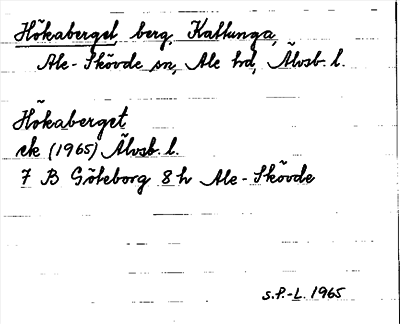 Hökaberget, berg, Kattunga,
Ale-Skövde sn, Ale hd, Älvsb. l.
Hökaberget
ek (1965) Älvsb. l.
7 B Göteborg 8 h Ale-Skövde
S.P.-L. 1965